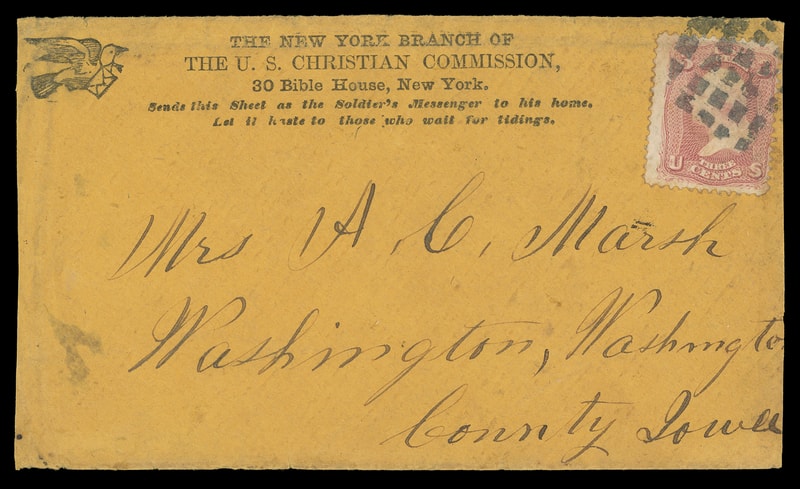 THE NEW YORK BRANCH OF
THE U. S. CHRISTIAN COMMISSION,
30 Bible House, New York.
Sends this Sheet as the Soldier's Messenger to his home.
Let it haste to those who wait for tidings.
U THREE CENTS S
Mrs A. C. Marsh
Washington, Washington
County Iowa